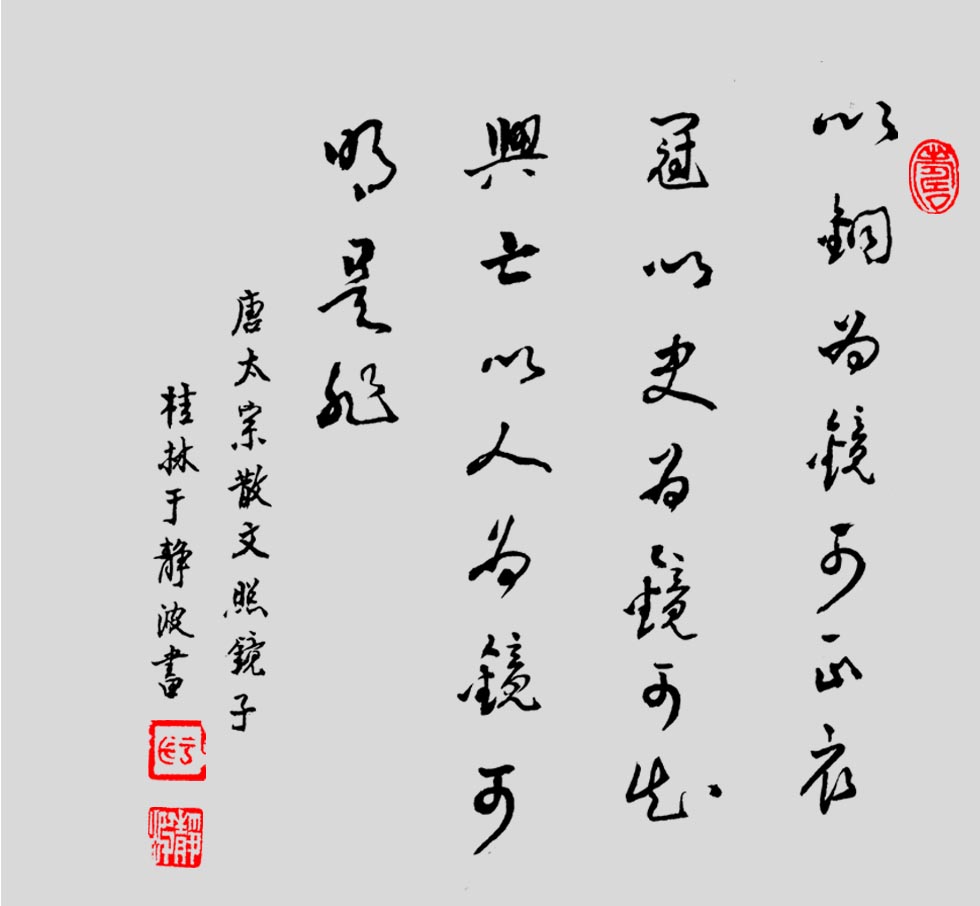 以銅为鏡可正衣
冠以史为鏡可知
興亡以人为鏡可
明是非
唐太宗散文照鏡子
桂林于静波書